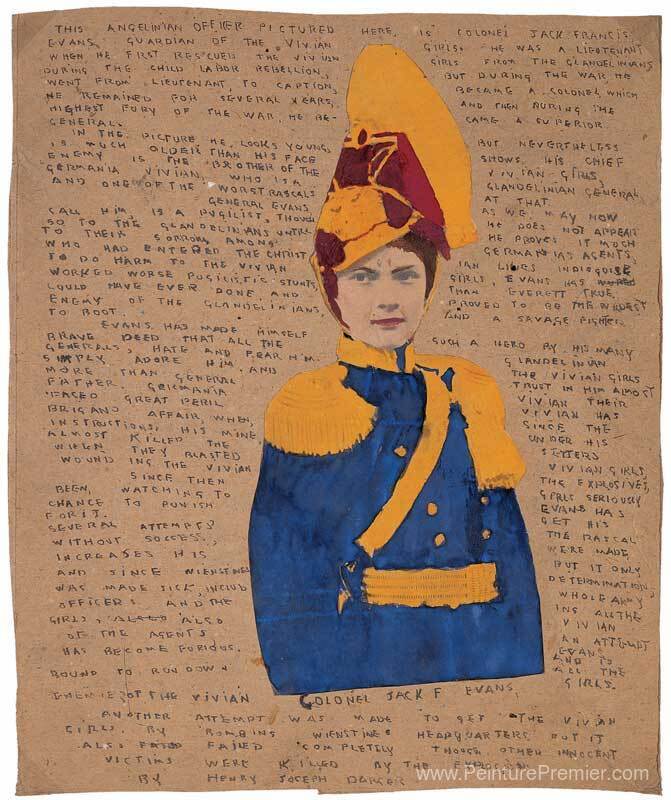 THIS ANGELINIAN OFFICER PICTURED HERE, IS COLONEL JACK FRANCIS
EVANS, GUARDIAN OF THE VIVIAN GIRLS. HE WAS A LIEUTENANT
WHEN HE FIRST RESCUED THE VIVIAN GIRLS FROM THE GLANDELINIANS
DURING THE CHILD LABOR REBELLION, BUT DURING THE WAR HE
WENT FROM LIEUTENANT, TO CAPTION, BECAME A COLONEL WHICH
HE REMAINED FOR SEVERAL YEARS, AND THEN DURING THE
HIGHEST FURY OF THE WAR, HE BE- CAME A SUPERIOR
GENERAL.
IN THE PICTURE HE, LOOKS YOUNG, BUT NEVERTHELESS
IS MUCH OLDER THAN HIS FACE SHOWS. HIS CHIEF
ENEMY IS THE BROTHER OF THE VIVIAN GIRLS,
GERMANIA VIVIAN, WHO IS A GLANDELINIAN GENERAL
AND ONE OF THE WORST RASCALS AT THAT.
GENERAL EVANS AS WE MAY NOW
CALL HIM, IS A PUGILIST, THOUGH HE DOES NOT APPEAR
SO TO THE GLANDELINIANS UNTIL HE PROVES IT MUCH
TO THEIR SORROW, AMONG GERMANIAS AGENTS,
WHO HAD ENTERED THE CHRIST IAN LINES IN DISGUISE
TO DO HARM TO THE VIVIAN GIRLS, EVANS HAS
WORKED WORSE PUGILISTIC STUNTS, THAN EVERETT TRUE,
COULD HAVE EVER DONE AND PROVED TO BE THE
ENEMY OF THE GLANDELINIANS, AND A SAVAGE FIGHTER
TO BOOT.
EVANS HAS MADE HIMSELF SUCH A HERO BY HIS MANY
BRAVE DEED THAT ALL THE GLANDELINIAN
GENERALS, HATE AND FEAR HIM. THE VIVIAN GIRLS
SIMPLY ADORE HIM, AND TRUST IN HIM ALMOST
MORE THAN GENERAL VIVIAN THEIR
FATHER. GERMANIA VIVIAN HAS
FACED GREAT PERIL SINCE THE
BRIGAND AFFAIR, WHEN, UNDER HIS
INSTRUCTIONS, HIS MINE SETTERS
ALMOST KILLED THE VIVIAN GIRLS
WHEN THEY BLASTED THE EXPLOSIVES,
WOUNDING THE VIVIAN GIRLS SERIOUSLY
SINCE THEN EVANS HAS
BEEN, WATCHING TO GET HIS
CHANCE TO PUNISH THE RASCAL
FOR IT.
SEVERAL ATTEMPTS WERE MADE
WITHOUT SUCCESS, BUT IT ONLY
INCREASES HIS DETERMINATION,
AND SINCE WIENSTINES WHOLE ARMY
WAS MADE SICK, INCLUD ING ALL THE
OFFICERS AND THE VIVIAN
GIRLS, ALSO AN ATTEMPT
OF THE AGENTS EVANS
HAS BECOME FURIOUS. AND IS
BOUND TO RUN DOWN ALL THE
ENEMIES OF THE VIVIAN GIRLS.
COLONEL JACK F EVANS.
ANOTHER ATTEMPT WAS MADE TO GET THE VIVIAN
GIRLS. BY BOMBING WIENSTINES HEADQUARTERS BUT IT
ALSO FAILED COMPLETELY THOUGH OTHER INNOCENT
VICTIMS WERE KILLED BY THE EXPLOSION
BY HENRY JOSEPH DARGER
www.PeinturePremier.com